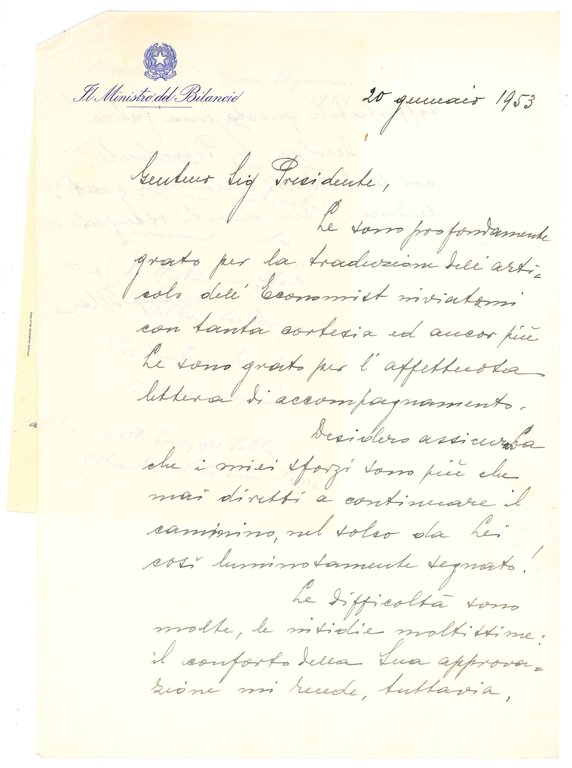 Il Ministro del Bilancio
20 gennaio 1953
Gentmo Sig Presidente,
Le sono profondamente
grato per la traduzione dell'arti-
colo dell'Economist inviatomi
con tanta cortesia ed ancor più
Le sono grato per l'affettuosa
lettera di accompagnamento.
Desidero assicurarLa
che i miei sforzi sono più che
mai diretti a continuare il
cammino, nel solco da Lei
così luminosamente segnato!
Le difficoltà sono
molte, le insidie moltissime:
il conforto della Sua approva=
zione mi rende, tuttavia,